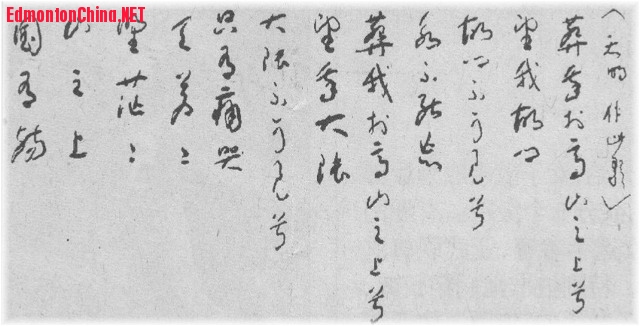 EdmontonChina.NET
（天明 作此歌）
葬我於高山之上兮
望我故鄉
故鄉不可見兮
永不能忘
葬我於高山之上兮
望我大陸
大陸不可見兮
只有痛哭
天蒼〻
野茫〻
山之上
國有殤